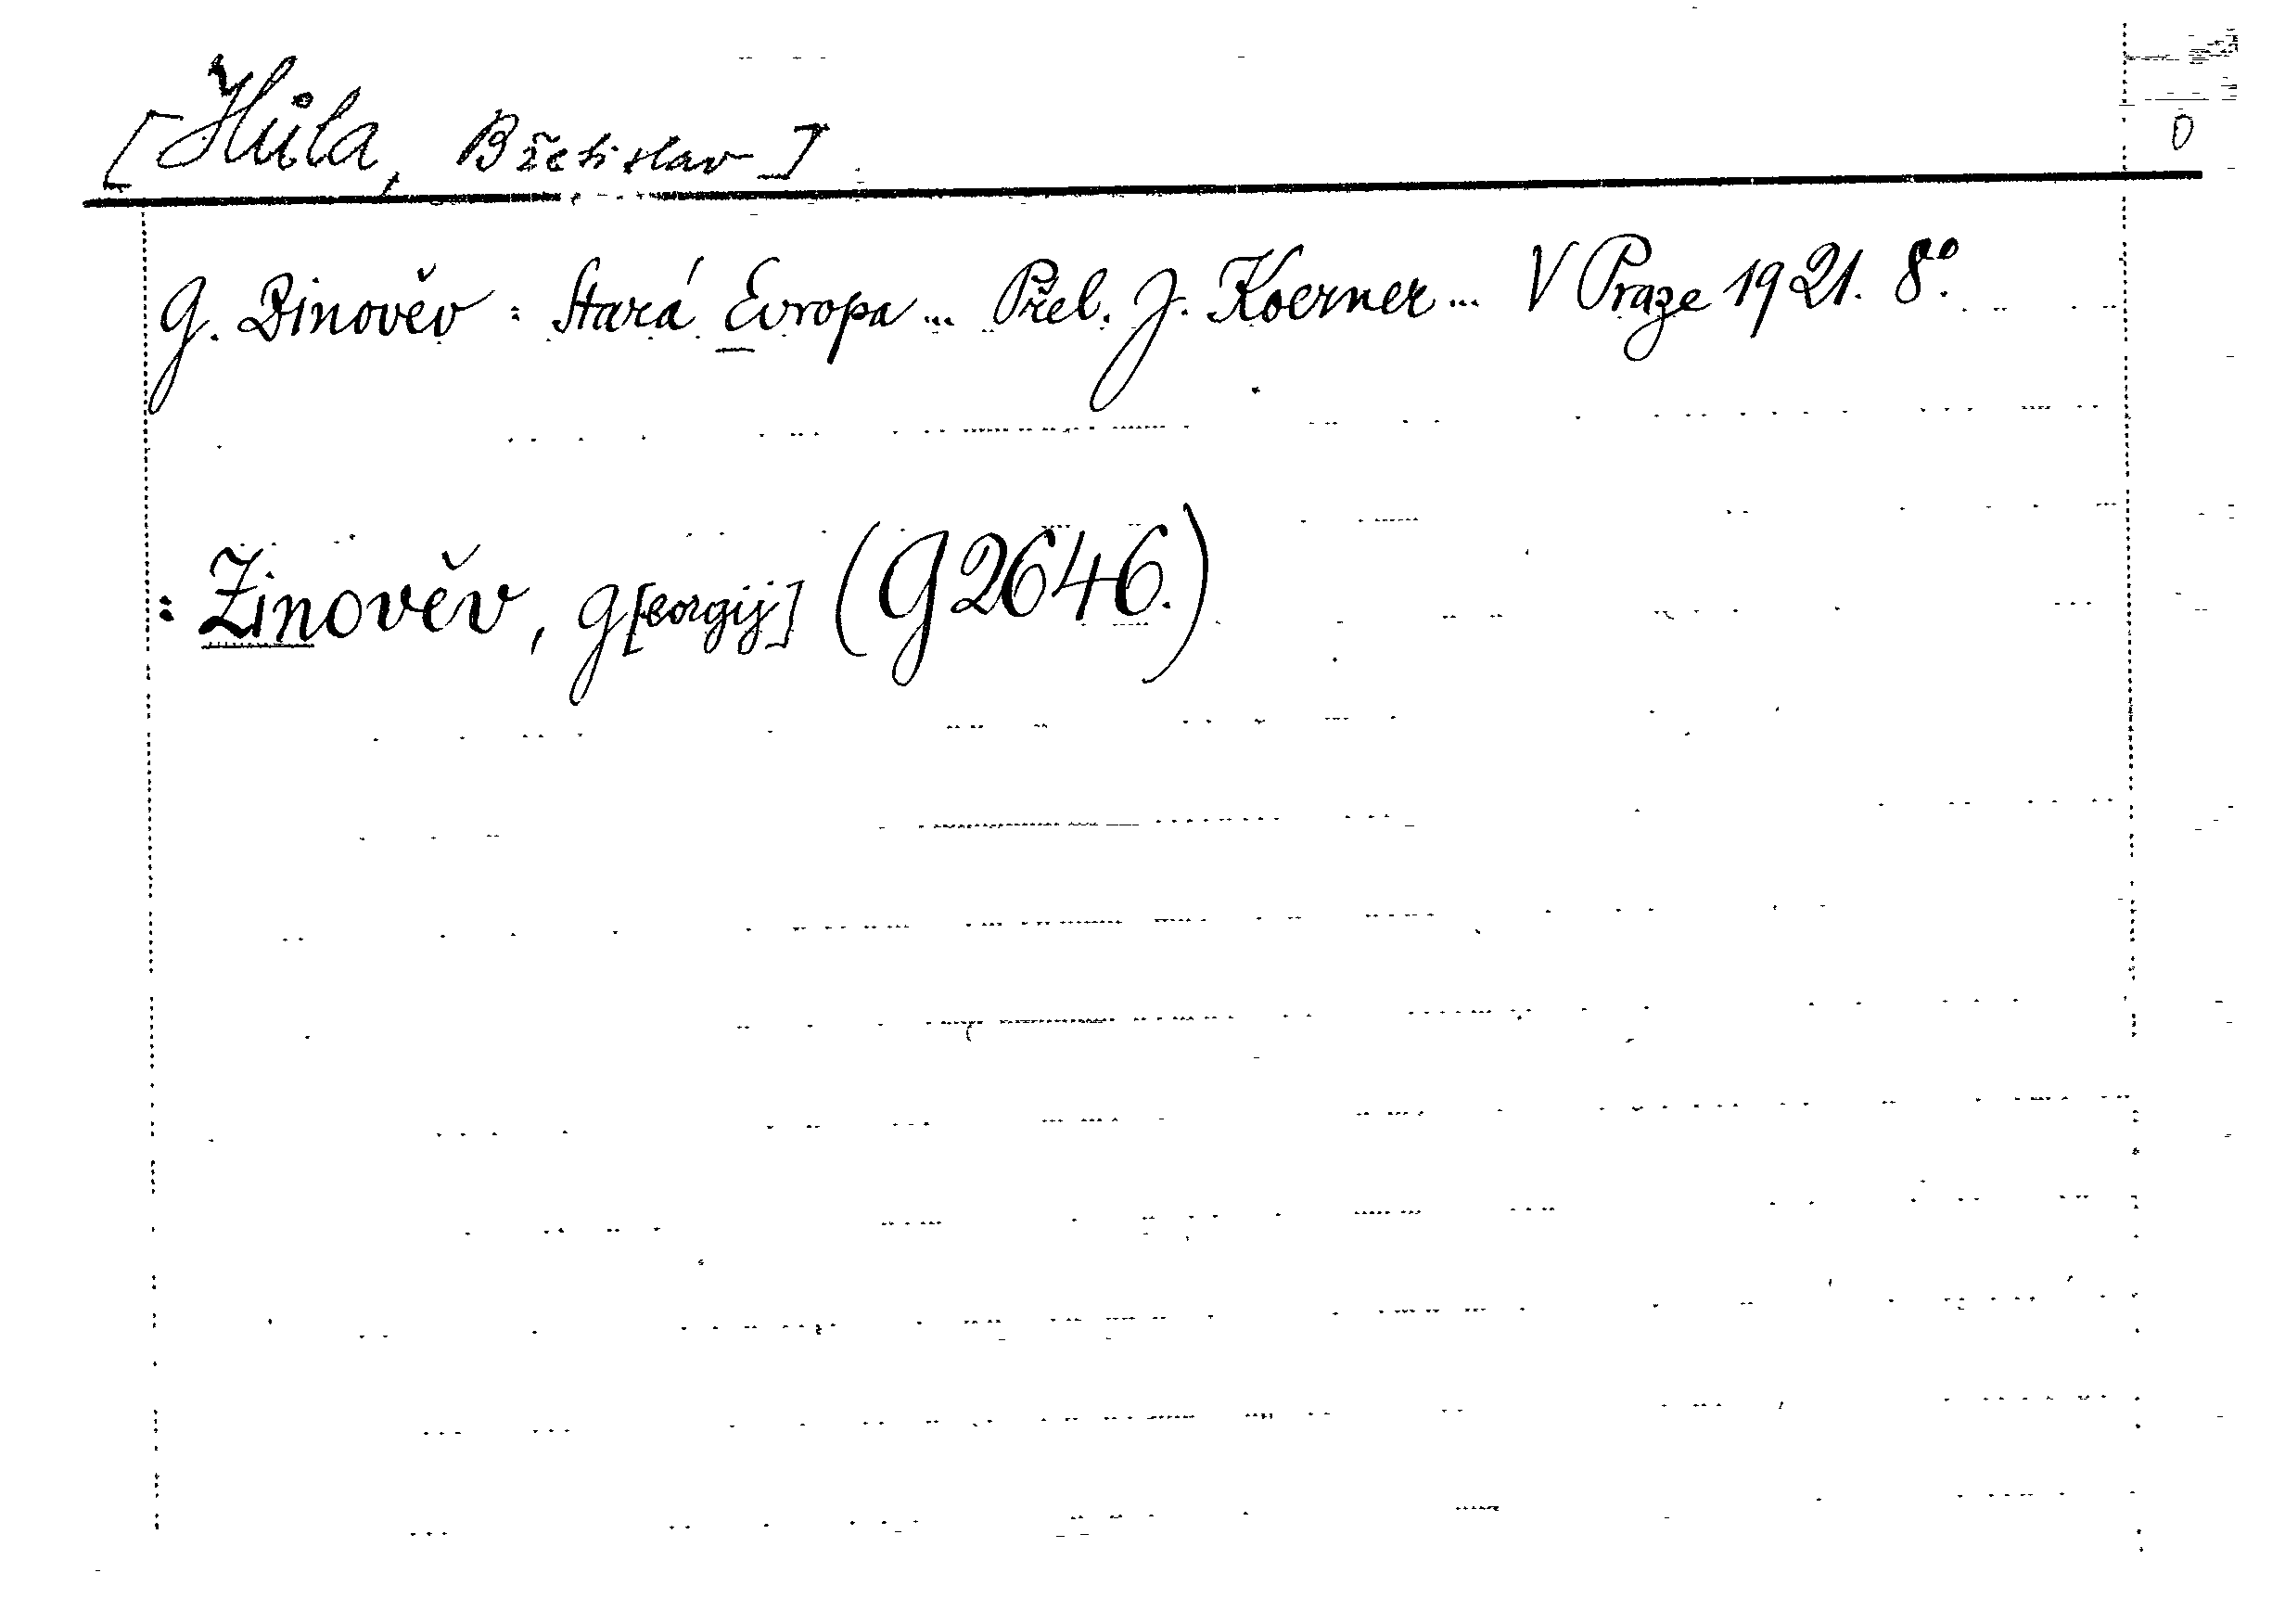 [Hůla, Břetislav]
0
G. Zinověv: Stará Evropa... Přel. J. Koerner... V Praze 1921. 8°.
: Zinověv, G[eorgij] (G 2646.)